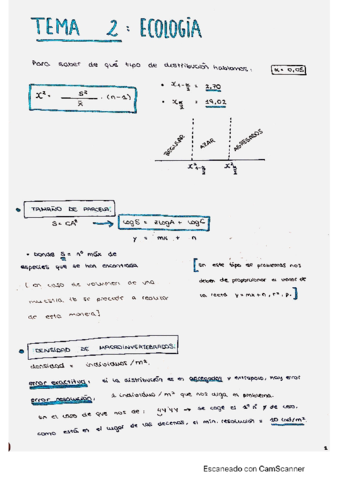 TEMA 2: ECOLOGÍA
Para saber de qué tipo de distribución hablamos:
α = 0,05
X² = S² / x̄ · (n-1)
• X1-α/2 = 2,70
• Xα/2 = 19,02
REGULAR
AZAR
AGREGADOS
X²1-α/2
X²α/2
• TAMAÑO DE PARCELA:
S = CA^z → Log S = z Log A + Log C
y = mx + n
• donde S = nº máx de
especies que se han encontrado
[ en caso de volumen de una
muestra, tb se procede a realizar
de esta manera]
[En este tipo de problemas nos
deben de proporcionar el valor de
la recta y = mx + n, r², p.]
• DENSIDAD DE MACROINVERTEBRADOS:
densidad = individuos / m².
error exactitud: si la distribución es en agregados y extrapolo, hay error
error resolución: 1 individuo / m² que nos diga el problema.
En el caso de que nos den: 44'44 → se coge el 1º nº y de cero,
como está en el lugar de las decenas, el min. resolución = 10 ind/m²
1
Escaneado con CamScanner